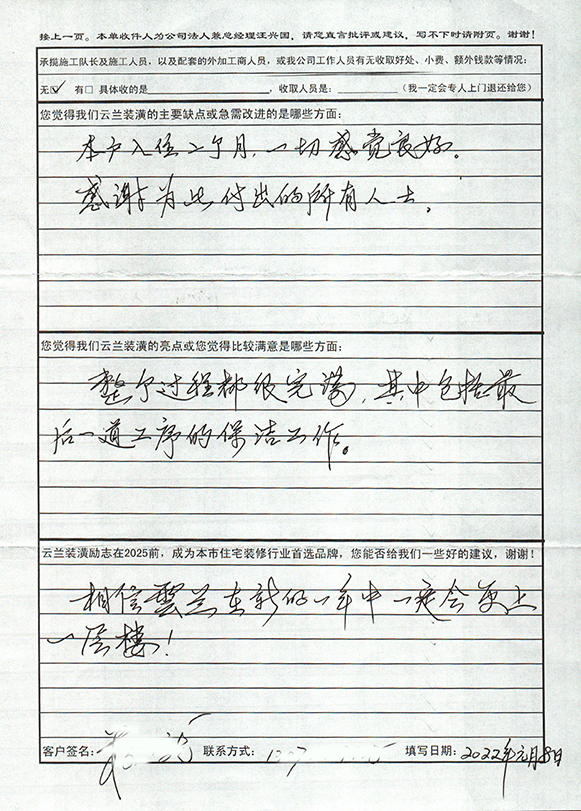 接上一页。本单收件人为公司法人兼总经理汪兴国，请您直言批评或建议，写不下时请附页。谢谢！
承揽施工队长及施工人员，以及配套的外加工商人员，或我公司工作人员有无收取好处、小费、额外钱款等情况：
无☑ 有□ 具体收的是____________，收取人员是：________（我一定会专人上门退还给您）
您觉得我们云兰装潢的主要缺点或急需改进的是哪些方面：
本户入住2个月，一切感觉良好。
感谢为此付出的所有人士。
您觉得我们云兰装潢的亮点或您觉得比较满意是哪些方面：
整个过程都很完满，其中包括最
后一道工序的保洁工作。
云兰装潢励志在2025前，成为本市住宅装修行业首选品牌，您能否给我们一些好的建议，谢谢！
相信雲兰在新的一年中一定会更上
一层楼！
客户签名： 联系方式： 填写日期：2022年元月8日